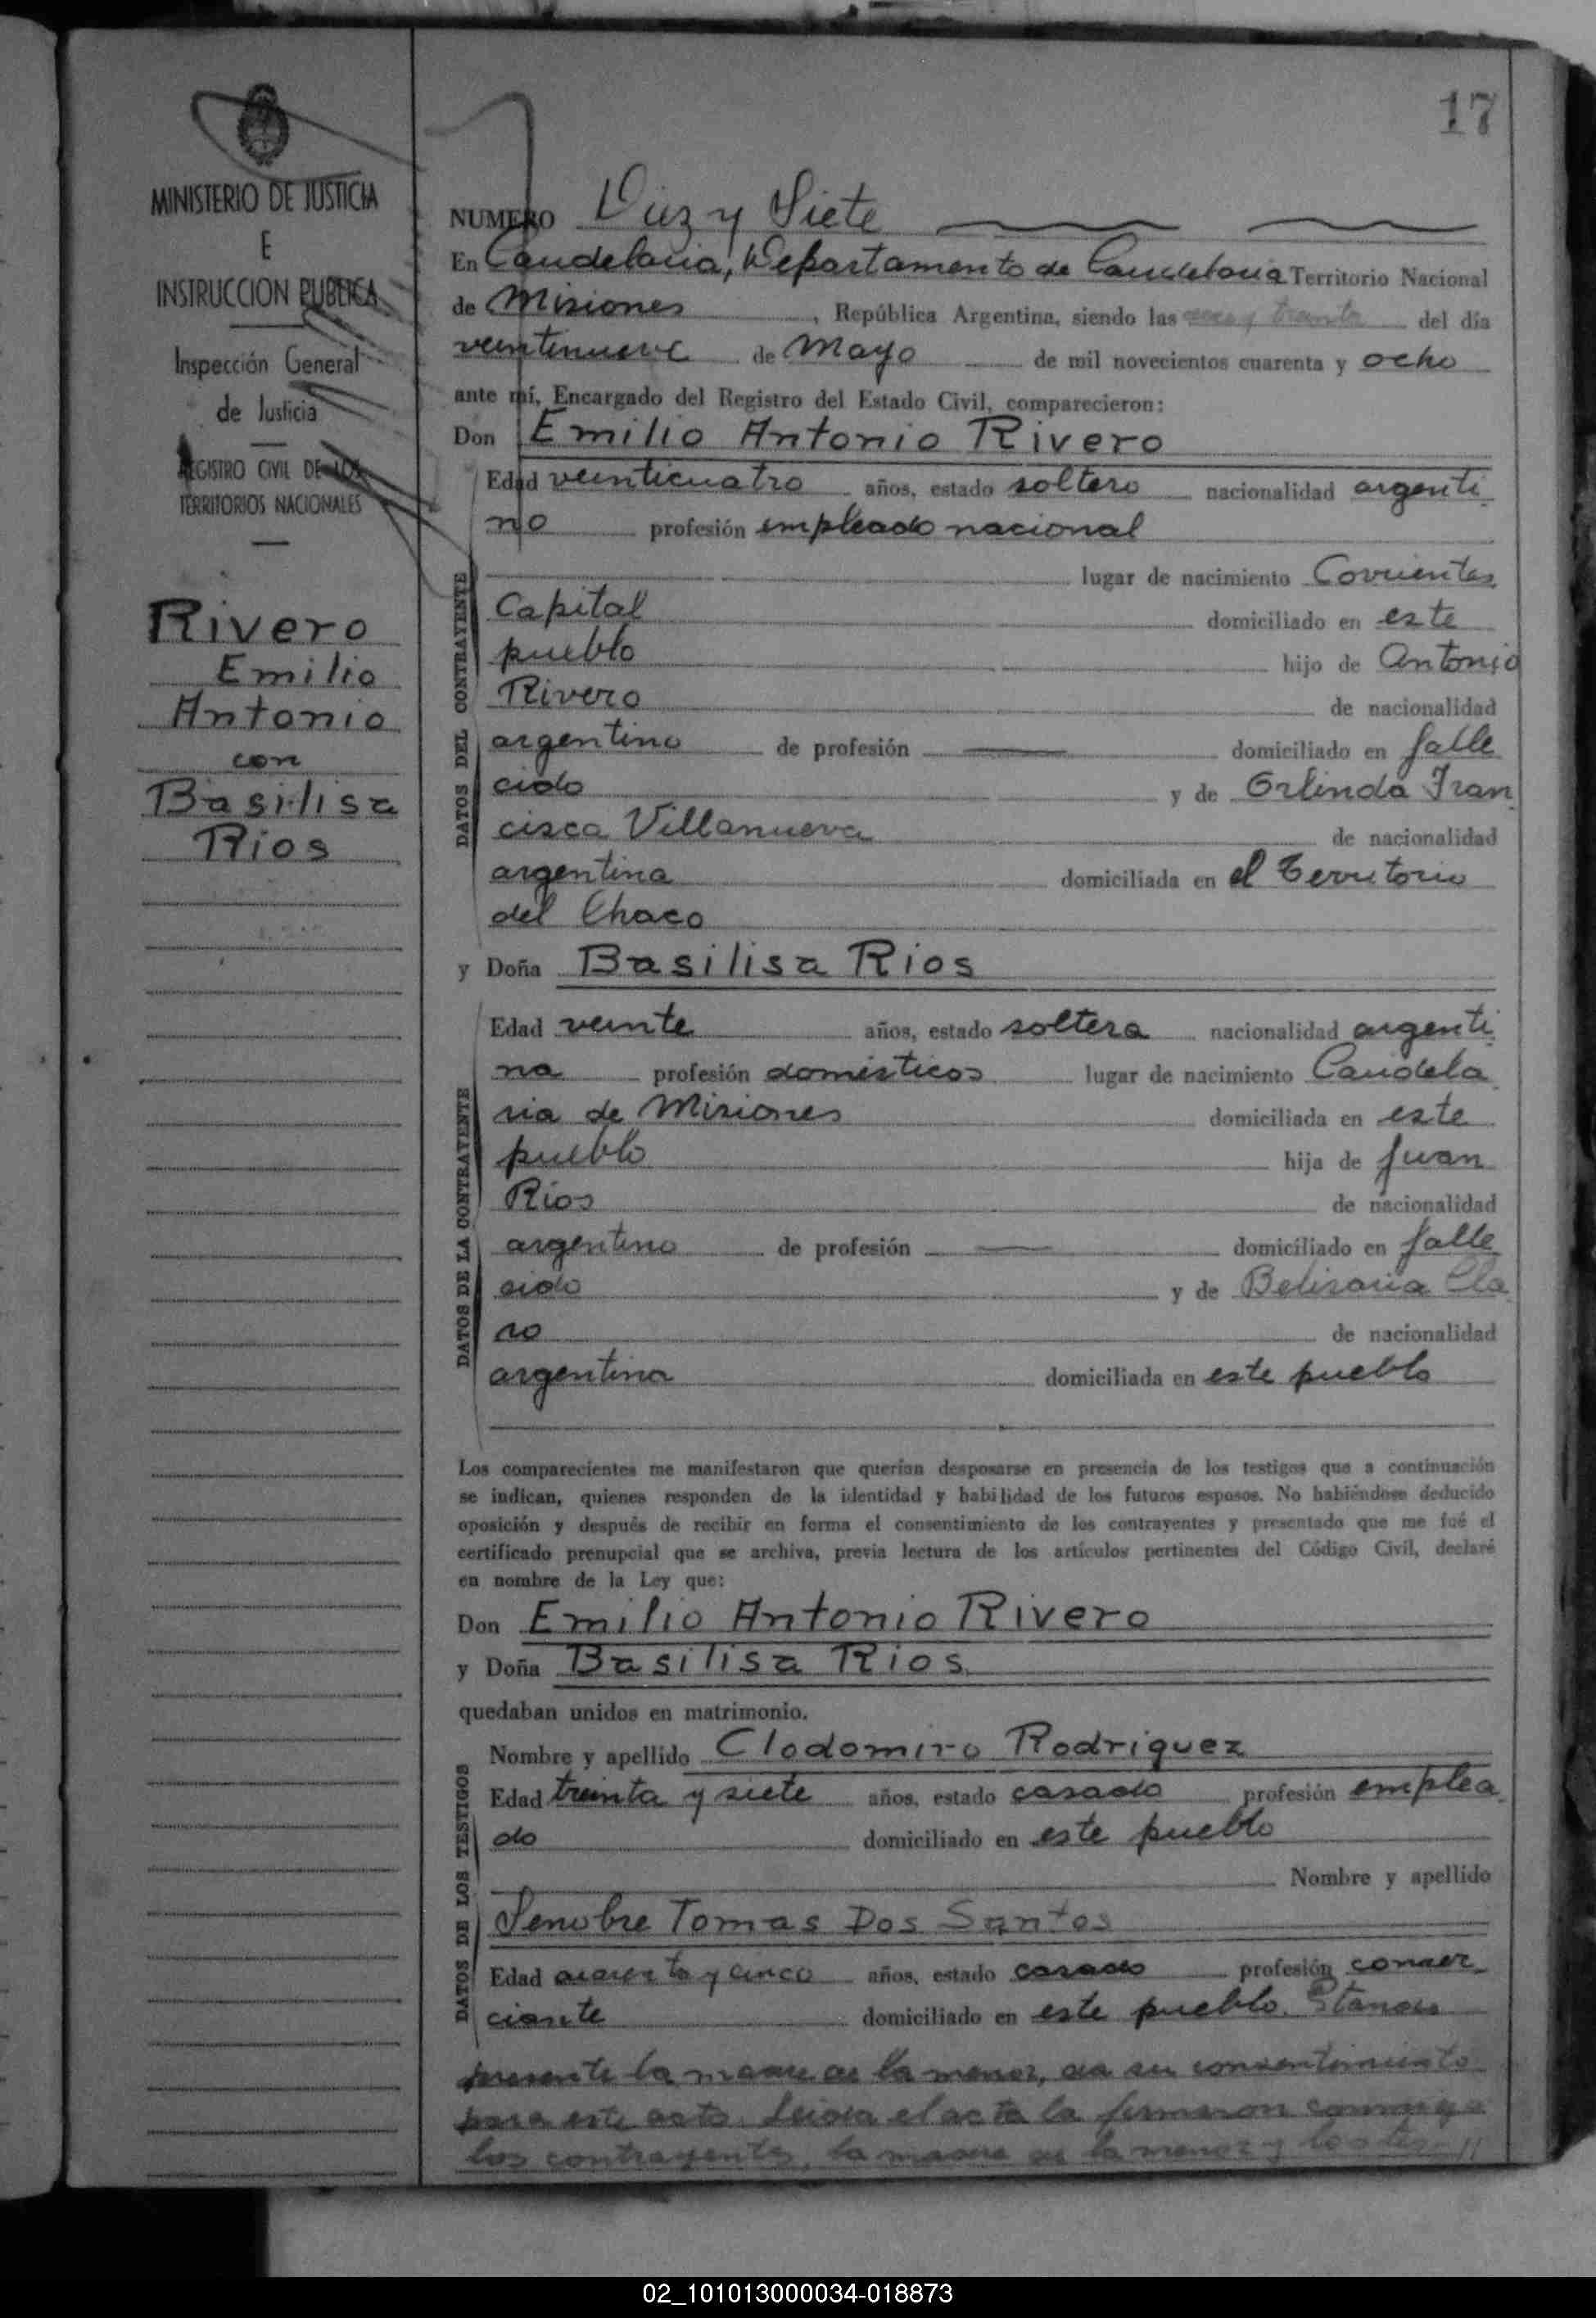 17
MINISTERIO DE JUSTICIA
E
INSTRUCCION PUBLICA
Inspección General
de Justicia
REGISTRO CIVIL DE LOS
TERRITORIOS NACIONALES
Rivero
Emilio
Antonio
con
Basilisa
Rios
NUMERO Diez y Siete
En Candelaria, Departamento de Candelaria Territorio Nacional
de Misiones, República Argentina, siendo las y treinta del día
veintinueve de Mayo de mil novecientos cuarenta y ocho
ante mí, Encargado del Registro del Estado Civil, comparecieron:
Don Emilio Antonio Rivero
DATOS DEL CONTRAYENTE
Edad veinticuatro años, estado soltero nacionalidad argenti
no profesión empleado nacional
lugar de nacimiento Corrientes
Capital domiciliado en este
pueblo hijo de Antonio
Rivero de nacionalidad
argentino de profesión — domiciliado en falle
cido y de Orlinda Fran
cisca Villanueva de nacionalidad
argentina domiciliada en el Territorio
del Chaco
y Doña Basilisa Rios
DATOS DE LA CONTRAYENTE
Edad veinte años, estado soltera nacionalidad argenti
na profesión domésticos lugar de nacimiento Candela
ria de Misiones domiciliada en este
pueblo hija de Juan
Rios de nacionalidad
argentino de profesión — domiciliado en falle
cido y de Belisaria Cla
ro de nacionalidad
argentina domiciliada en este pueblo
Los comparecientes me manifestaron que querían desposarse en presencia de los testigos que a continuación
se indican, quienes responden de la identidad y habilidad de los futuros esposos. No habiéndose deducido
oposición y después de recibir en forma el consentimiento de los contrayentes y presentado que me fué el
certificado prenupcial que se archiva, previa lectura de los artículos pertinentes del Código Civil, declaré
en nombre de la Ley que:
Don Emilio Antonio Rivero
y Doña Basilisa Rios
quedaban unidos en matrimonio.
DATOS DE LOS TESTIGOS
Nombre y apellido Clodomiro Rodriguez
Edad treinta y siete años, estado casado profesión emplea
do domiciliado en este pueblo
Nombre y apellido
Senobre Tomas Dos Santos
Edad cuarenta y cinco años, estado casado profesión comer
ciante domiciliado en este pueblo. Stando
presente la madre de la menor, da su consentimiento
para este acto. Leida el acta la firmaron conmigo
los contrayentes, la madre de la menor y los tes-//
02_101013000034-018873